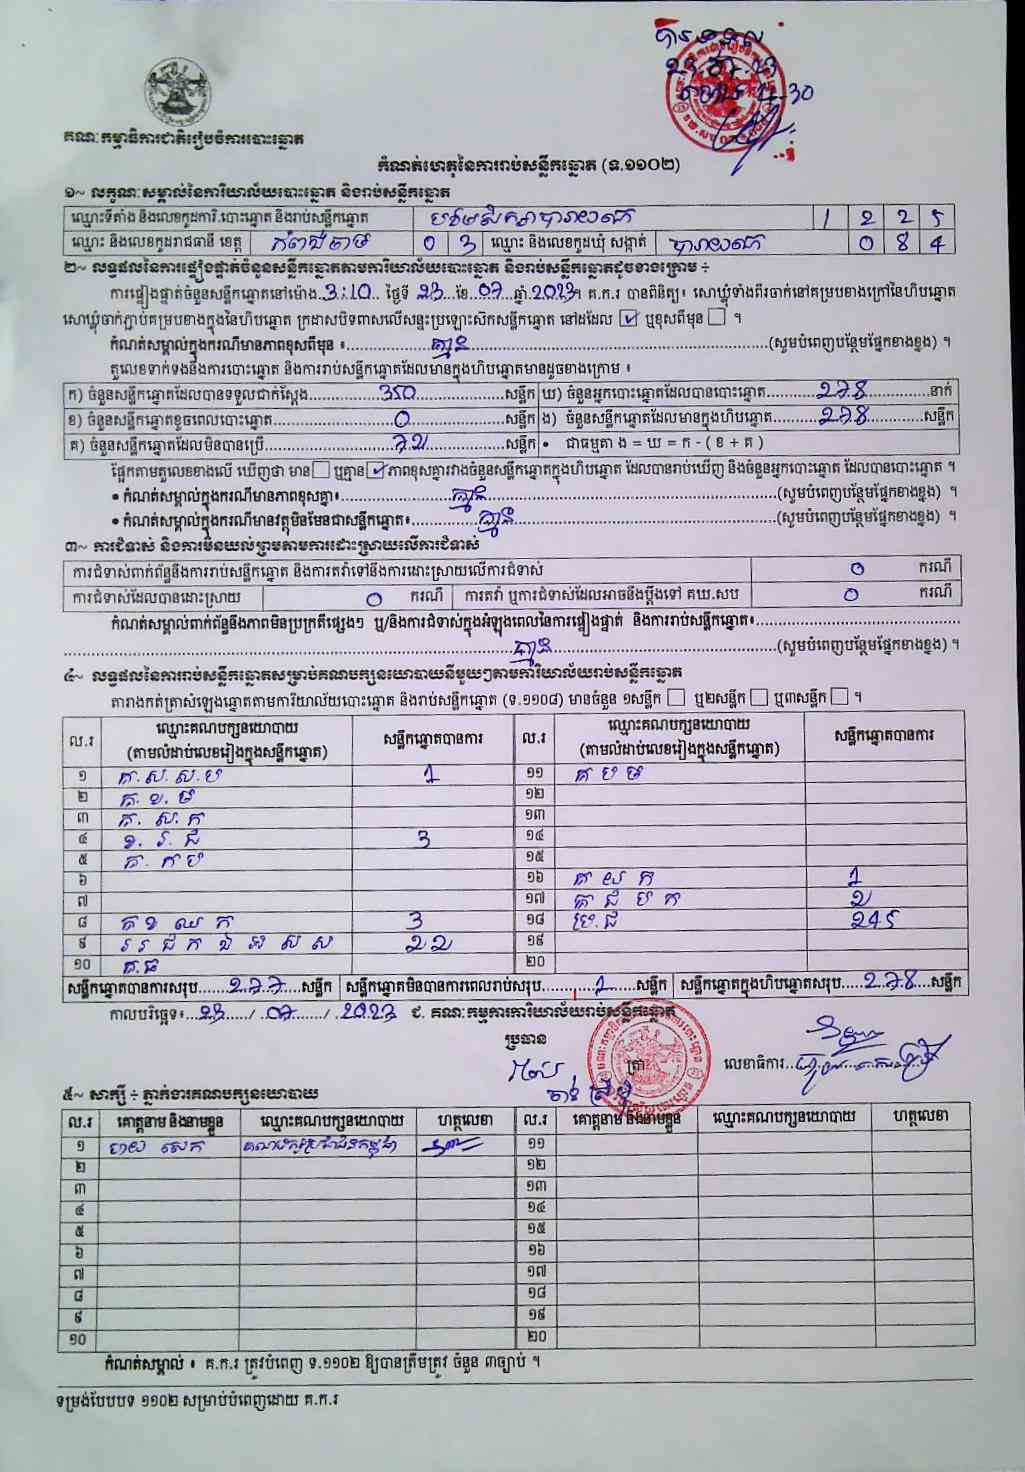 គណៈកម្មាធិការជាតិរៀបចំការបោះឆ្នោត
កំណត់ហេតុនៃការរាប់សន្លឹកឆ្នោត (ទ.១១០២)
១~ លក្ខណៈសម្គាល់នៃការិយាល័យបោះឆ្នោត និងរាប់សន្លឹកឆ្នោត
ឈ្មោះទីតាំង និងលេខកូដការិ.បោះឆ្នោត និងរាប់សន្លឹកឆ្នោត 1 2 2 5
ឈ្មោះ និងលេខកូដរាជធានី ខេត្ត កំពង់ចាម 0 3 ឈ្មោះ និងលេខកូដឃុំ សង្កាត់ 0 8 4
២~ លទ្ធផលនៃការផ្ទៀងផ្ទាត់ចំនួនសន្លឹកឆ្នោតតាមការិយាល័យបោះឆ្នោត និងរាប់សន្លឹកឆ្នោតដូចខាងក្រោម ÷
ការផ្ទៀងផ្ទាត់ចំនួនសន្លឹកឆ្នោតនៅម៉ោង 3:10 ថ្ងៃទី 23 ខែ 07 ឆ្នាំ 2023 ។ គ.ក.រ បានពិនិត្យ៖ សោឃ្លុំទាំងពីរចាក់នៅគម្របខាងក្រៅនៃហិបឆ្នោត
សោឃ្លុំចាក់ភ្ជាប់គម្របខាងក្នុងនៃហិបឆ្នោត ក្រដាសបិទពាសលើសន្ទះប្រឡោះសិកសន្លឹកឆ្នោត នៅដដែល ☑ ឬខុសពីមុន ☐ ។
កំណត់សម្គាល់ក្នុងករណីមានភាពខុសពីមុន ៖ គ្មាន (សូមបំពេញបន្ថែមផ្នែកខាងខ្នង) ។
តួលេខទាក់ទងនឹងការបោះឆ្នោត និងការរាប់សន្លឹកឆ្នោតដែលមានក្នុងហិបឆ្នោតមានដូចខាងក្រោម ៖
ក) ចំនួនសន្លឹកឆ្នោតដែលបានទទួលជាក់ស្តែង 350 សន្លឹក ឃ) ចំនួនអ្នកបោះឆ្នោតដែលបានបោះឆ្នោត 278 នាក់
ខ) ចំនួនសន្លឹកឆ្នោតខូចពេលបោះឆ្នោត 0 សន្លឹក ង) ចំនួនសន្លឹកឆ្នោតដែលមានក្នុងហិបឆ្នោត 278 សន្លឹក
គ) ចំនួនសន្លឹកឆ្នោតដែលមិនបានប្រើ 72 សន្លឹក • ជាធម្មតា ង = ឃ = ក - ( ខ + គ )
ផ្អែកតាមតួលេខខាងលើ ឃើញថា មាន ☐ ឬគ្មាន ☑ ភាពខុសគ្នារវាងចំនួនសន្លឹកឆ្នោតក្នុងហិបឆ្នោត ដែលបានរាប់ឃើញ និងចំនួនអ្នកបោះឆ្នោត ដែលបានបោះឆ្នោត ។
• កំណត់សម្គាល់ក្នុងករណីមានភាពខុសគ្នា៖ គ្មាន (សូមបំពេញបន្ថែមផ្នែកខាងខ្នង) ។
• កំណត់សម្គាល់ក្នុងករណីមានវត្ថុមិនមែនជាសន្លឹកឆ្នោត៖ គ្មាន (សូមបំពេញបន្ថែមផ្នែកខាងខ្នង) ។
៣~ ការជំទាស់ និងការមិនយល់ព្រមតាមការដោះស្រាយលើការជំទាស់
ការជំទាស់ពាក់ព័ន្ធនឹងការរាប់សន្លឹកឆ្នោត និងការតវ៉ាទៅនឹងការដោះស្រាយលើការជំទាស់ 0 ករណី
ការជំទាស់ដែលបានដោះស្រាយ 0 ករណី ការតវ៉ា ឬការជំទាស់ដែលអាចនឹងប្តឹងទៅ គឃ.សប 0 ករណី
កំណត់សម្គាល់ពាក់ព័ន្ធនឹងភាពមិនប្រក្រតីផ្សេងៗ ឬ/និងការជំទាស់ក្នុងអំឡុងពេលនៃការផ្ទៀងផ្ទាត់ និងការរាប់សន្លឹកឆ្នោត៖
គ្មាន (សូមបំពេញបន្ថែមផ្នែកខាងខ្នង) ។
៤~ លទ្ធផលនៃការរាប់សន្លឹកឆ្នោតសម្រាប់គណបក្សនយោបាយនីមួយៗតាមការិយាល័យរាប់សន្លឹកឆ្នោត
តារាងកត់ត្រាសំឡេងឆ្នោតតាមការិយាល័យបោះឆ្នោត និងរាប់សន្លឹកឆ្នោត (ទ.១១០៨) មានចំនួន ១សន្លឹក ☐ ឬ២សន្លឹក ☐ ឬ៣សន្លឹក ☐ ។
ល.រ ឈ្មោះគណបក្សនយោបាយ (តាមលំដាប់លេខរៀងក្នុងសន្លឹកឆ្នោត) សន្លឹកឆ្នោតបានការ ល.រ ឈ្មោះគណបក្សនយោបាយ (តាមលំដាប់លេខរៀងក្នុងសន្លឹកឆ្នោត) សន្លឹកឆ្នោតបានការ
១ គ.ស.ស.ប 1 ១១ គ ប ម
២ គ.ខ.ម ១២
៣ គ.ស.ក ១៣
៤ ខ.រ.ជ 3 ១៤
៥ គ.ក ប ១៥
៦ ១៦ គ យ ក 1
៧ ១៧ គ ជ ប ក 2
៨ គ ខ ឈ ក 3 ១៨ ប្រ.ជ 245
៩ 22 ១៩
១០ គ.ធ ២០
សន្លឹកឆ្នោតបានការសរុប 277 សន្លឹក សន្លឹកឆ្នោតមិនបានការពេលរាប់សរុប 1 សន្លឹក សន្លឹកឆ្នោតក្នុងហិបឆ្នោតសរុប 278 សន្លឹក
កាលបរិច្ឆេទ៖ 23 / 07 / 2023 ជ. គណៈកម្មការការិយាល័យរាប់សន្លឹកឆ្នោត
ប្រធាន
ត្រា លេខាធិការ
៥~ សាក្សី ÷ ភ្នាក់ងារគណបក្សនយោបាយ
ល.រ គោត្តនាម និងនាមខ្លួន ឈ្មោះគណបក្សនយោបាយ ហត្ថលេខា ល.រ គោត្តនាម និងនាមខ្លួន ឈ្មោះគណបក្សនយោបាយ ហត្ថលេខា
១ គណបក្សប្រជាជនកម្ពុជា ១១
២ ១២
៣ ១៣
៤ ១៤
៥ ១៥
៦ ១៦
៧ ១៧
៨ ១៨
៩ ១៩
១០ ២០
កំណត់សម្គាល់ ៖ គ.ក.រ ត្រូវបំពេញ ទ.១១០២ ឱ្យបានត្រឹមត្រូវ ចំនួន ៣ច្បាប់ ។
ទម្រង់បែបបទ ១១០២ សម្រាប់បំពេញដោយ គ.ក.រ